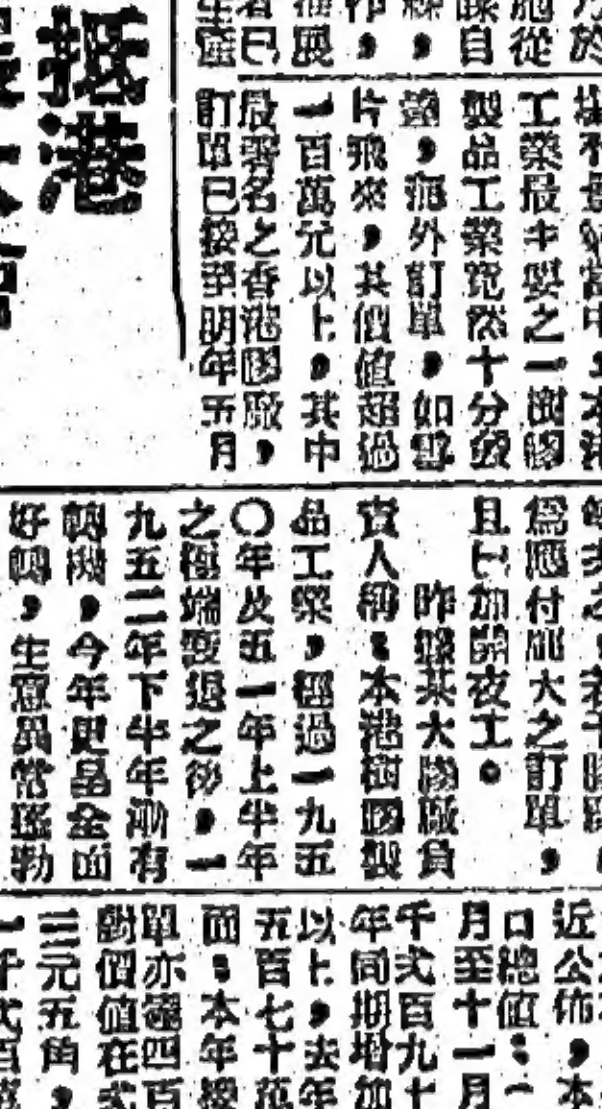 於
施從
自
作，
展
者已
生產
工業最主要之一樹膠
製品工業竟然十分旺
盛，海外訂單，如雪
片飛來，其價值超過
一百萬元以上，其中
最著名之香港膠廠，
訂單已接至明年五月
抵港
為應付龐大之訂單，
且已加開夜工。
昨據某大膠廠負
責人稱：本港樹膠製
品工業，經過一九五
〇年及五一年上半年
之極端衰退之後，一
九五二年下半年漸有
轉機，今年更是全面
好轉，生意異常蓬勃
近公佈，本
口總值：一
月至十一月
千式百九十
年同期增加
以上，去年
五百七十萬
面：本年
單亦達四百
對價值在式
三元五角，
一千式百